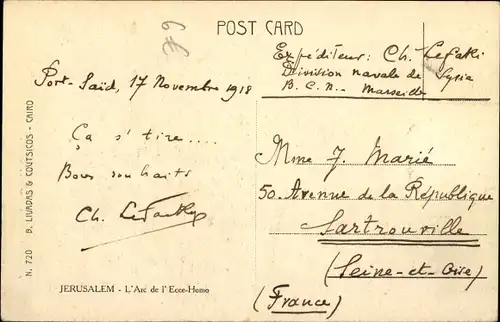 POST CARD
Expéditeur: Ch.
Division navale de Syrie
B. C. N. - Marseille
Port-Saïd, 17 Novembre 1918
Ça s'tire....
Bons souhaits
Ch.
Mme J. Marié
50. Avenue de la République
Sartrouville
(Seine-et-Oise)
(France)
JERUSALEM - L'Arc de l'Ecce-Homo
N. 720 D. LIVADAS & COUTSICOS - CAIRO